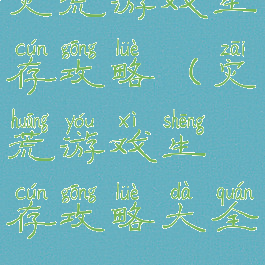 灾荒游戏生
cún gōng lüè zāi
存攻略(灾
huāng yóu xì shēng
荒游戏生
cún gōng lüè dà quán
存攻略大全